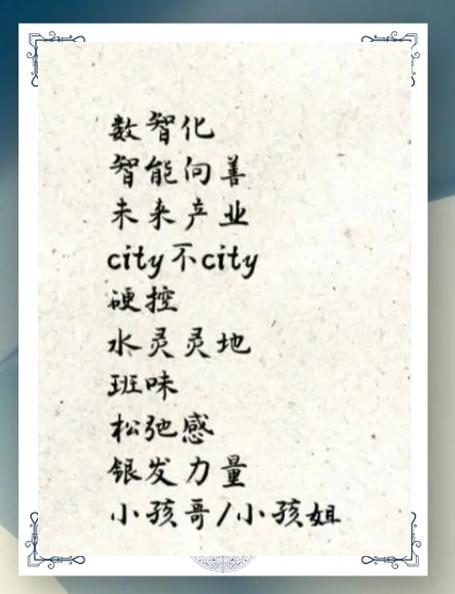 数智化
智能向善
未来产业
city不city
硬控
水灵灵地
班味
松弛感
银发力量
小孩哥/小孩姐